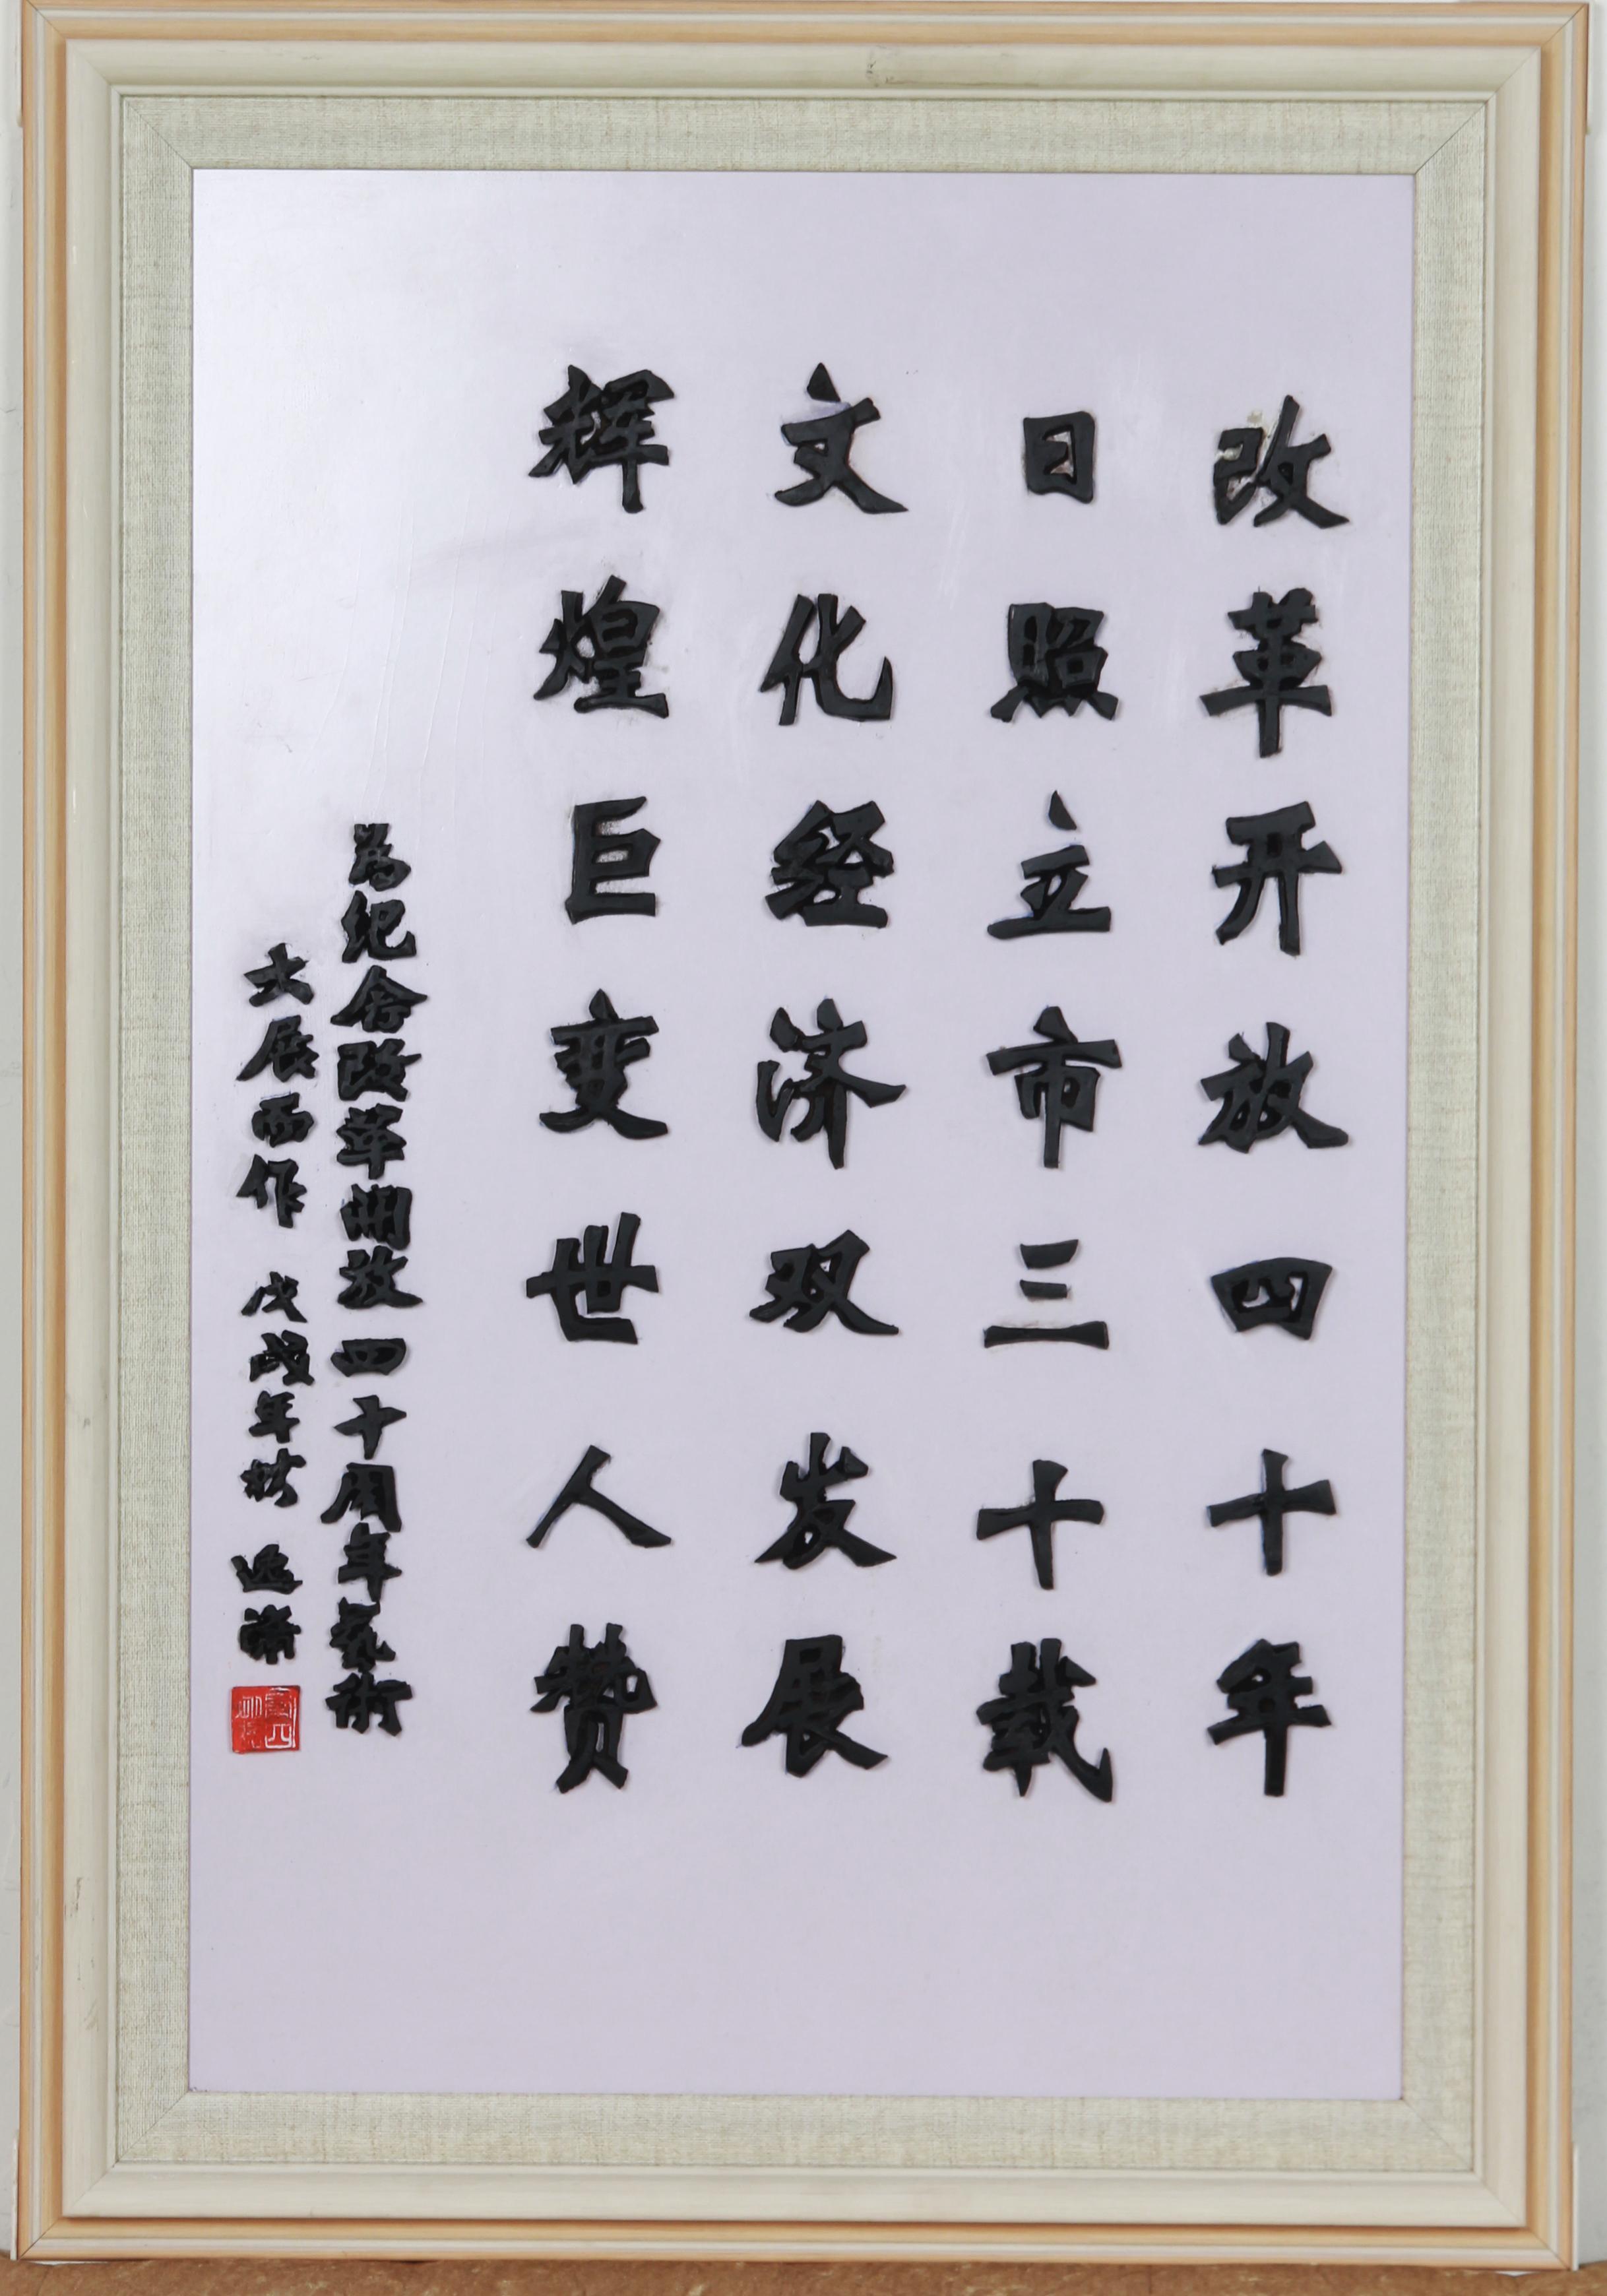 改革开放四十年
日照立市三十载
文化经济双发展
辉煌巨变世人赞
為纪念改革開放四十周年藝術
大展而作 戊戌年秋 逸